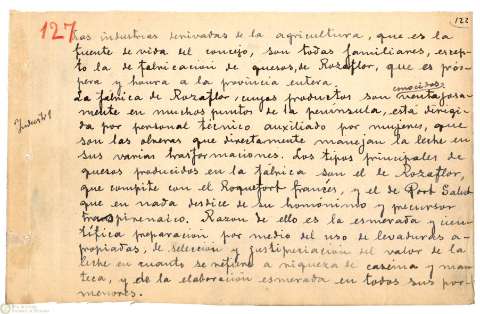 127
122
Las industrias derivadas de la agricultura, que es la
fuente de vida del concejo, son todas familiares, excep-
to la de fabricación de quesos, de Rozaflor, que es prós-
pera y honra a la provincia entera.
conocidos
La fábrica de Rozaflor, cuyos productos son ventajosa-
Industrias
mente en muchos puntos de la península, está dirigi-
da por personal técnico auxiliado por mujeres, que
son las obreras que directamente manejan la leche en
sus varias trasformaciones. Los tipos principales de
quesos producidos en la fábrica son el de Rozaflor,
que compite con el Roquefort francés, y el de Port Salut
que en nada desdice de su homónimo y precursor
transpirenaico. Razon de ello es la esmerada y cien-
tífica preparación por medio del uso de levaduras a-
propiadas, de selección y justipreciación del valor de la
leche en cuanto se refiere a riqueza de caseina y man-
teca, y de la elaboración esmerada en todos sus por-
menores.